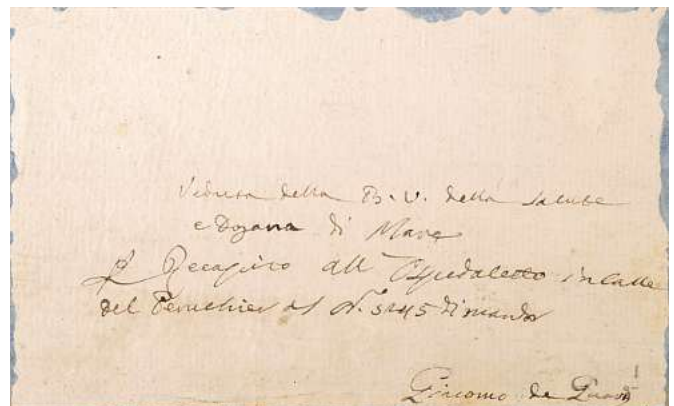 Veduta della B. V. della Salute
e Dogana di Mare
Recapito all' Ospedaletto in Calle
del Peruchier al N.º 5245 dimandar
Giacomo de Guardi